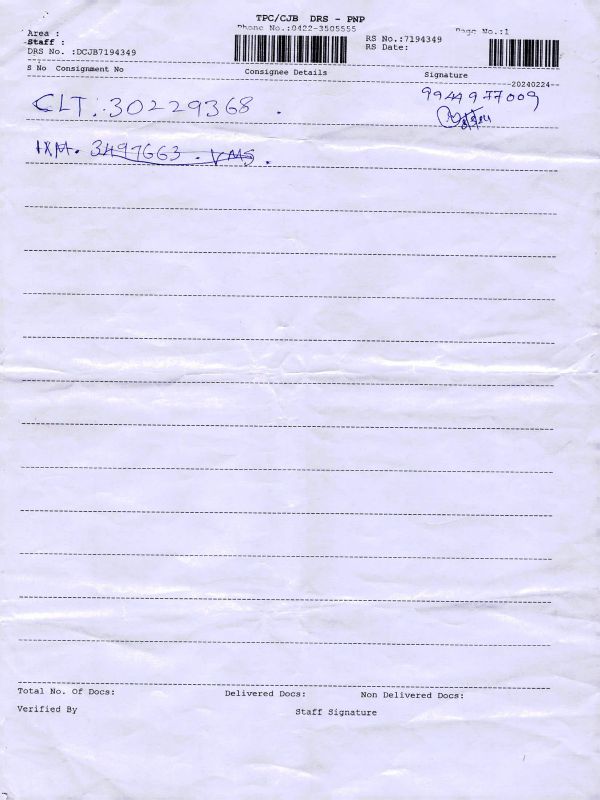 TPC/CJB DRS - PNP
Phone No.:0422-3505555
Page No.:1
Area :
Staff :
RS No.:7194349
DRS No. :DCJB7194349
RS Date:
S No Consignment No Consignee Details Signature
20240224
CLT.:30229368 . 9944977009
IXM. 3497663 . VMS .
Total No. Of Docs: Delivered Docs: Non Delivered Docs:
Verified By Staff Signature